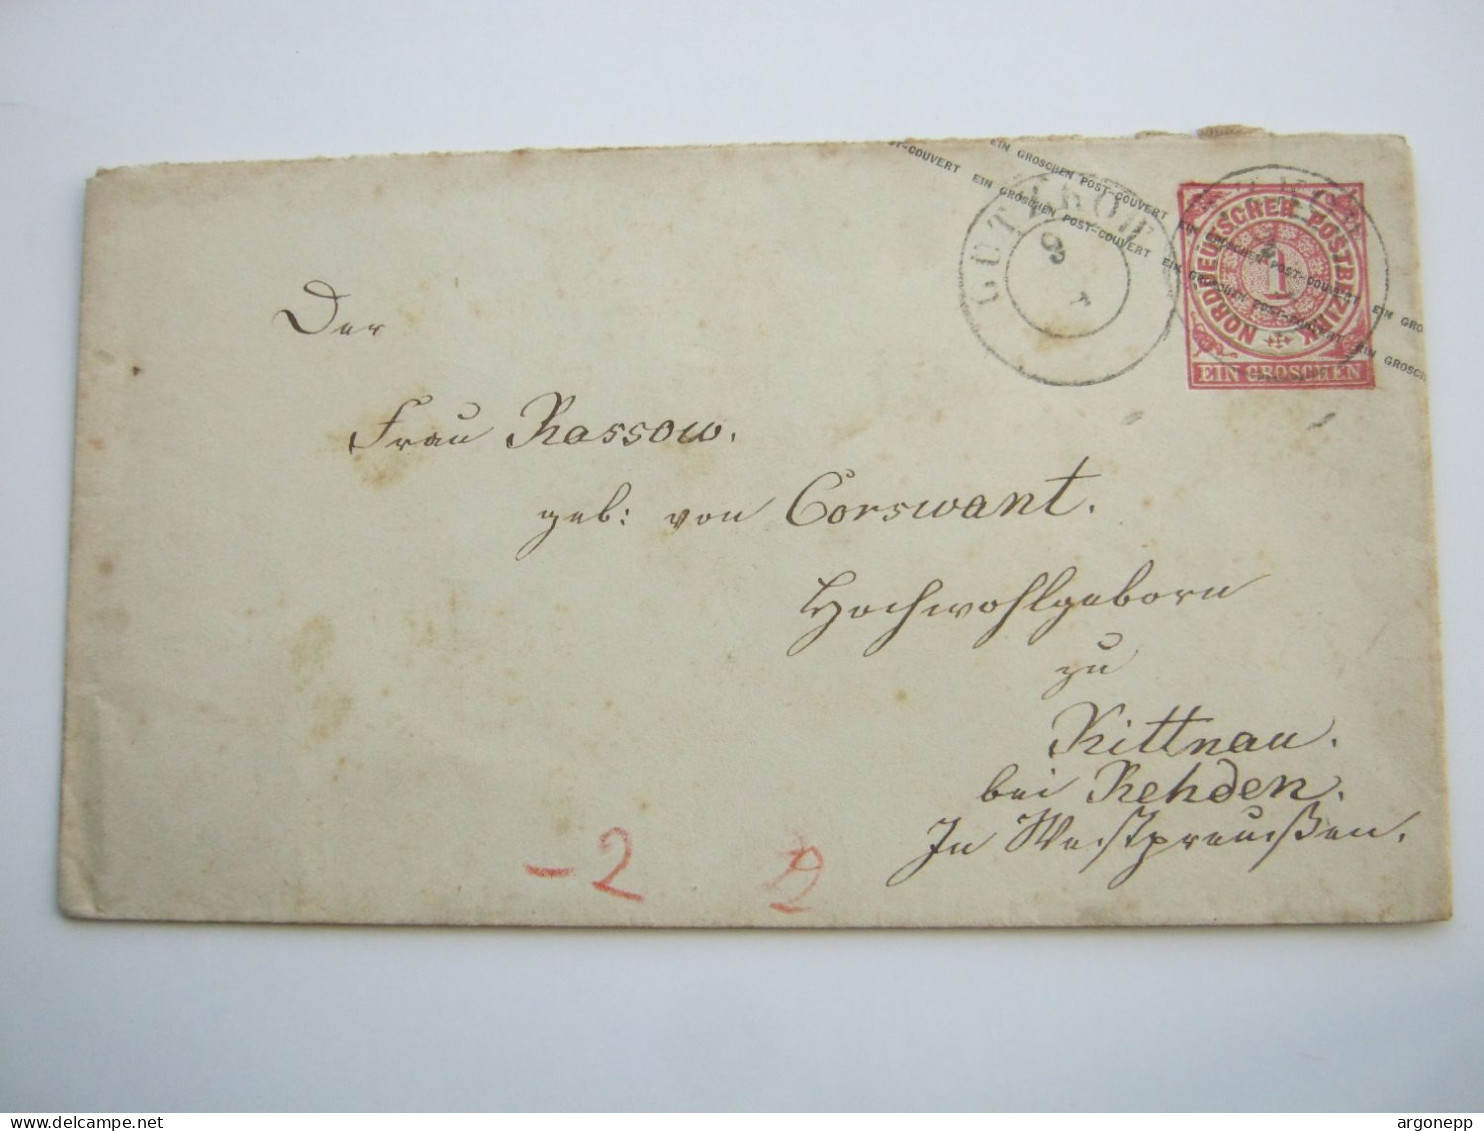 EIN GROSCHEN POST-COUVERT EIN GROSCHEN POST-COUVERT EIN GRO
ST-COUVERT EIN GROSCHEN POST-COUVERT EIN GROSCHEN POST-COUVERT EIN GROSCH
NORDDEUTSCHER POSTBEZIRK
1
EIN GROSCHEN
Der
Frau Rassow.
geb: von Corswant.
Hochwohlgeborn
zu
Kittnau.
bei Rehden.
In Westpreußen.
-2
delcampe.net
argonepp